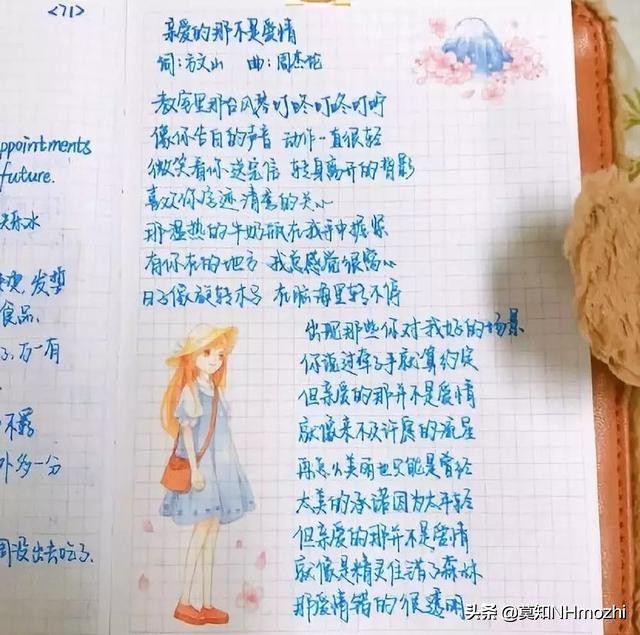 <71>
ppointments
future.
食品.
了,万一有
外多一分
周没出去吃了.
亲爱的那不是爱情
词:方文山 曲:周杰伦
教室里那台风琴叮咚叮咚叮咛
像你告白的声音 动作一直很轻
微笑看你送完信 转身离开的背影
喜欢你字迹清秀的关心
那温热的牛奶瓶在我手中握紧
有你在的地方 我总感觉很窝心
日子像旋转木马 在脑海里转不停
出现那些你对我好的场景
你说过牵了手就算约定
但亲爱的那并不是爱情
就像来不及许愿的流星
再怎么美丽也只能是曾经
太美的承诺因为太年轻
但亲爱的那并不是爱情
就像是精灵住错了森林
那爱情错的很透明
头条 @莫知NHmozhi